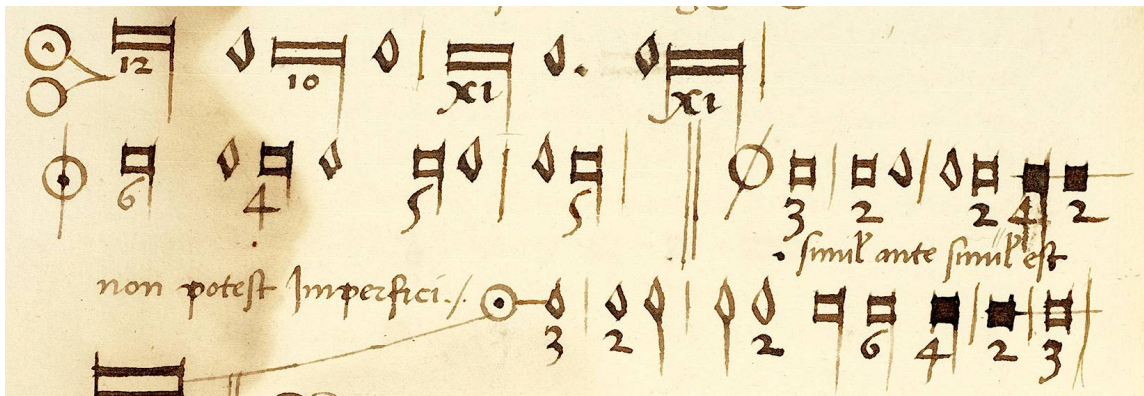 12 10 XI XI
6 4 5 5 3 2 2 4 2
. simil' ante simil' est
non potest Imperfici ./
3 2 2 6 4 2 3